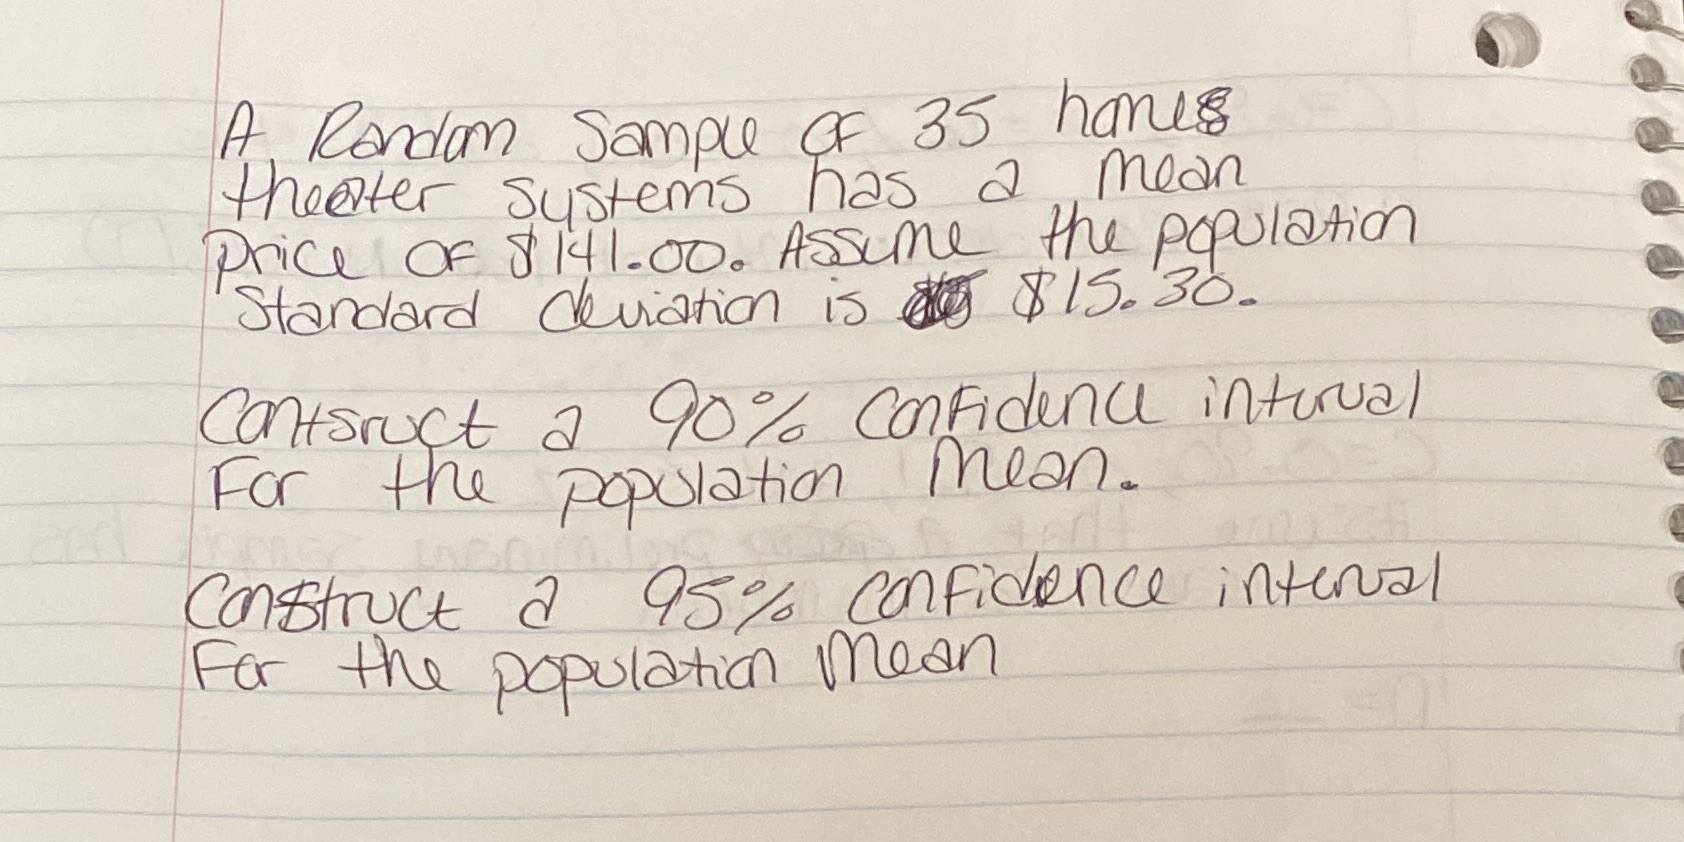 A Random Sample OF 35 homes
theater systems has a mean
price OF $141.00. Assume the population
Standard deviation is $15.30.
Contsruct a 90% confidence interval
For the population mean.
Construct a 95% confidence interval
For the population mean